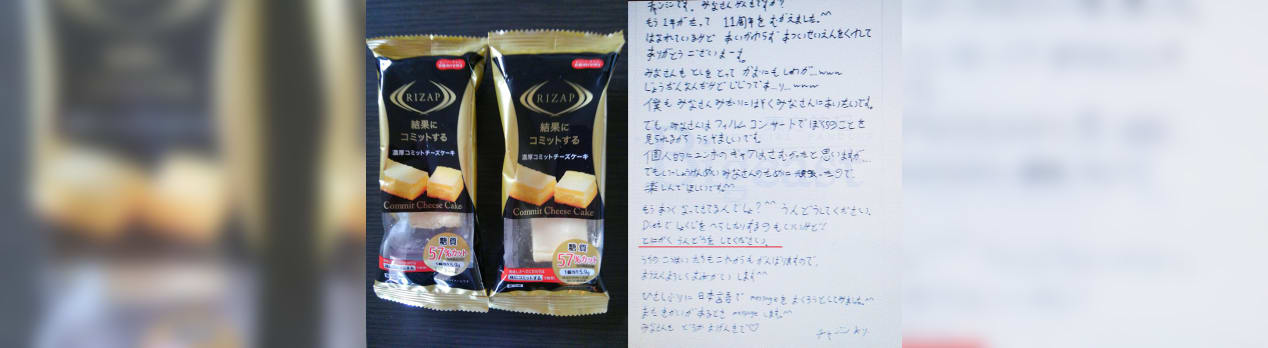 RIZAP
結果に
コミットする
濃厚コミットチーズケーキ
Commit Cheese Cake
糖質
57%カット
1個当り5.9g
RIZAP
結果に
コミットする
濃厚コミットチーズケーキ
Commit Cheese Cake
糖質
57%カット
1個当り5.9g
チャンミンです。みなさんげんきですか?
もう1年がたって 11周年をむかえました。^^
はなれているけど あいかわらず あついせいえんをくれて
ありがとうございまーす。
みなさんも としをとって
じょうだんなんだけど じじつです...り...www
僕も みなさんみたいにはやくみなさんにあいたいです。
でも、みなさんは フィルムコンサートで ぼくらのことを
見られるから うらやましいです。
個人的にユンホのギャグはさむかったと思いますが...
でもいっしょうけんめい みなさんのために 頑張ったので、
楽しんでほしいです^^
もう あつくなってきてるんでしょ?^^ うんどうしてください。
Dietで しょくじを へらしたりするのもいいけど!
とにかく うんどうを してください。
おうえんよろしくおねがいします^^
ひさしぶりに 日本言語で messageを おくろうとしてみました。^^
また きかいがあるとき message します。^^
みなさんも どうか おげんきで♡
チャンミンより